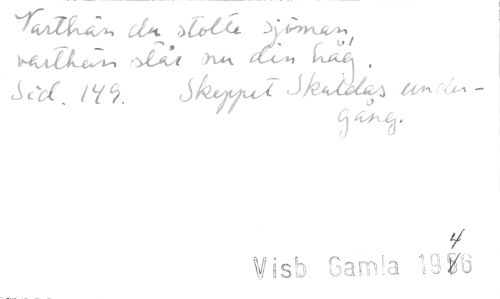 Varthän du stolte sjöman,
varthän står nu din håg.
Sid. 149. Skeppet Skuldas under-
gång.
4
Visb Gamla 1956